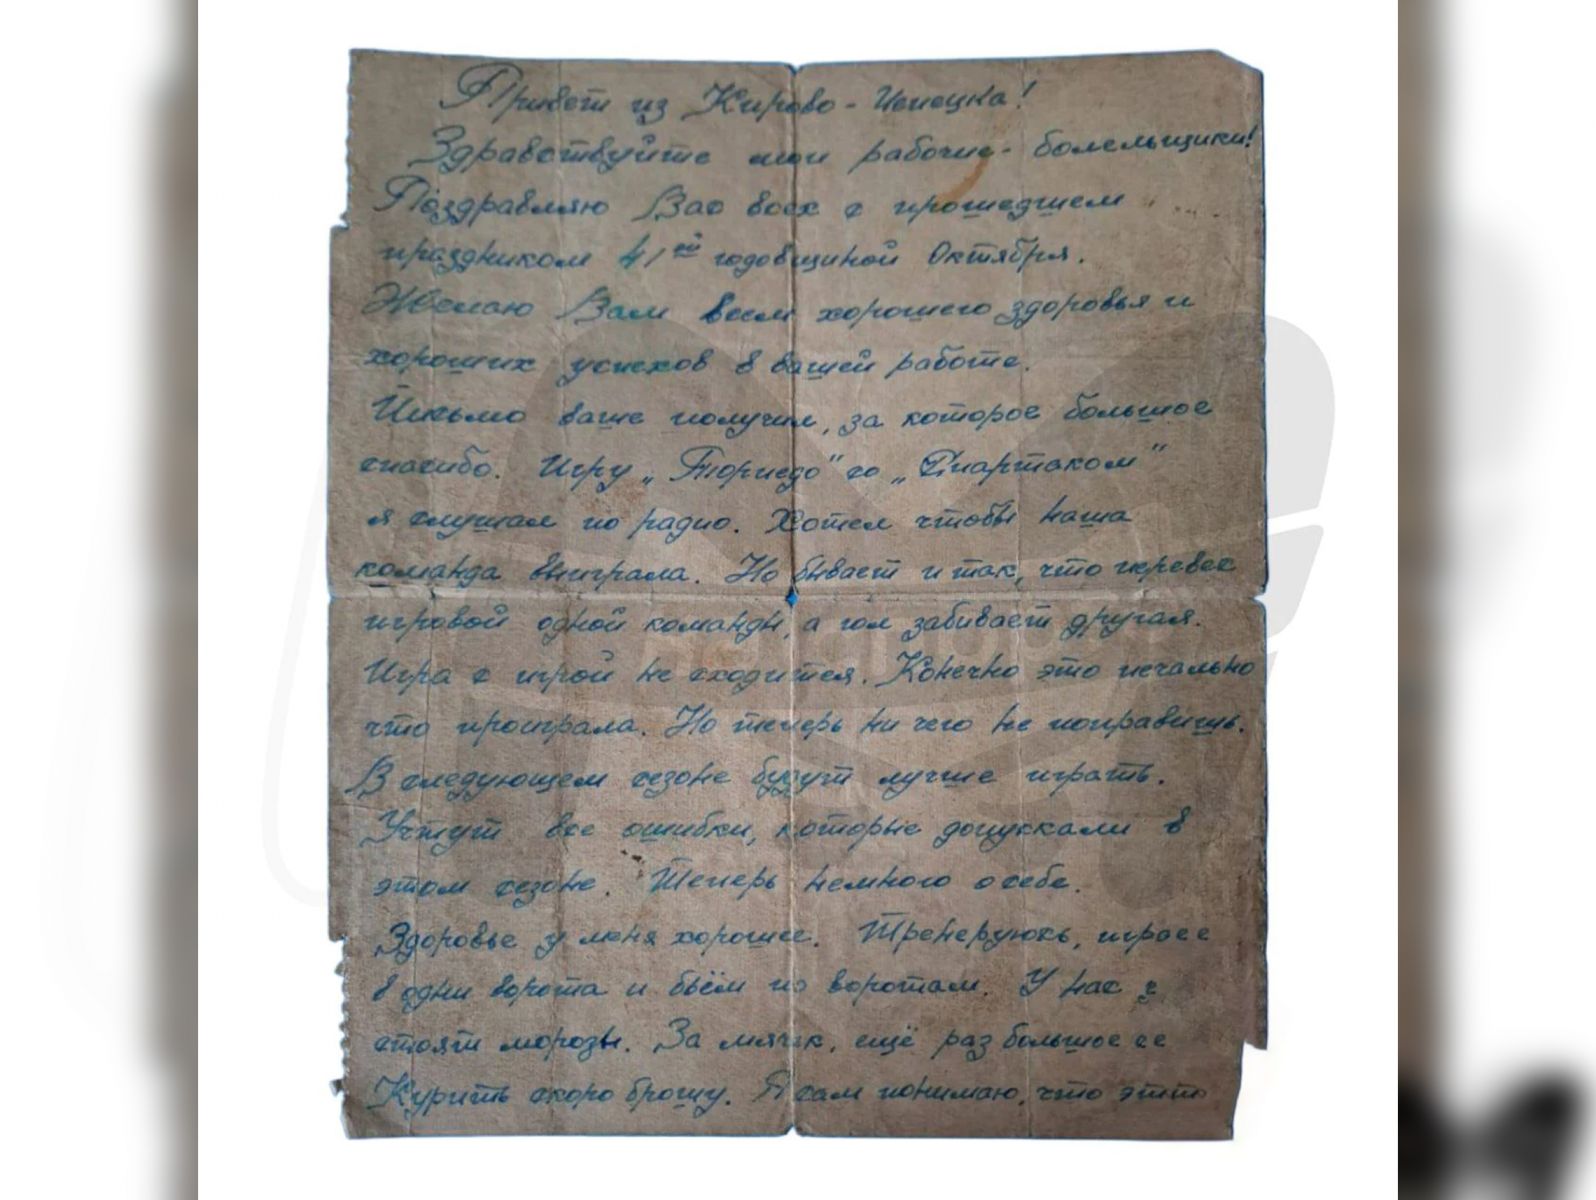 Привет из Кирово-Чепецка!
Здравствуйте мои рабочие-болельщики!
Поздравляю Вас всех с прошедшем
праздником 41ой годовщиной Октября.
Желаю Вам всем хорошего здоровья и
хороших успехов в вашей работе.
Письмо ваше получил, за которое большое
спасибо. Игру „Торпедо" со „Спартаком"
я слушал по радио. Хотел чтобы наша
команда выиграла. Но бывает и так, что перевес
игровой одной команды, а гол забивает другая.
Игра с игрой не сходится. Конечно это печально
что проиграла. Но теперь ни чего не поправишь.
В следующем сезоне будут лучше играть.
Учтут все ошибки, которые допускали в
этом сезоне. Теперь немного о себе.
Здоровье у меня хорошее. Тренеруюсь, играее
в одни ворота и бьём по воротам. У нас
стоят морозы. За мячик, ещё раз большое
Курить скоро брошу. Я сам понимаю, что это